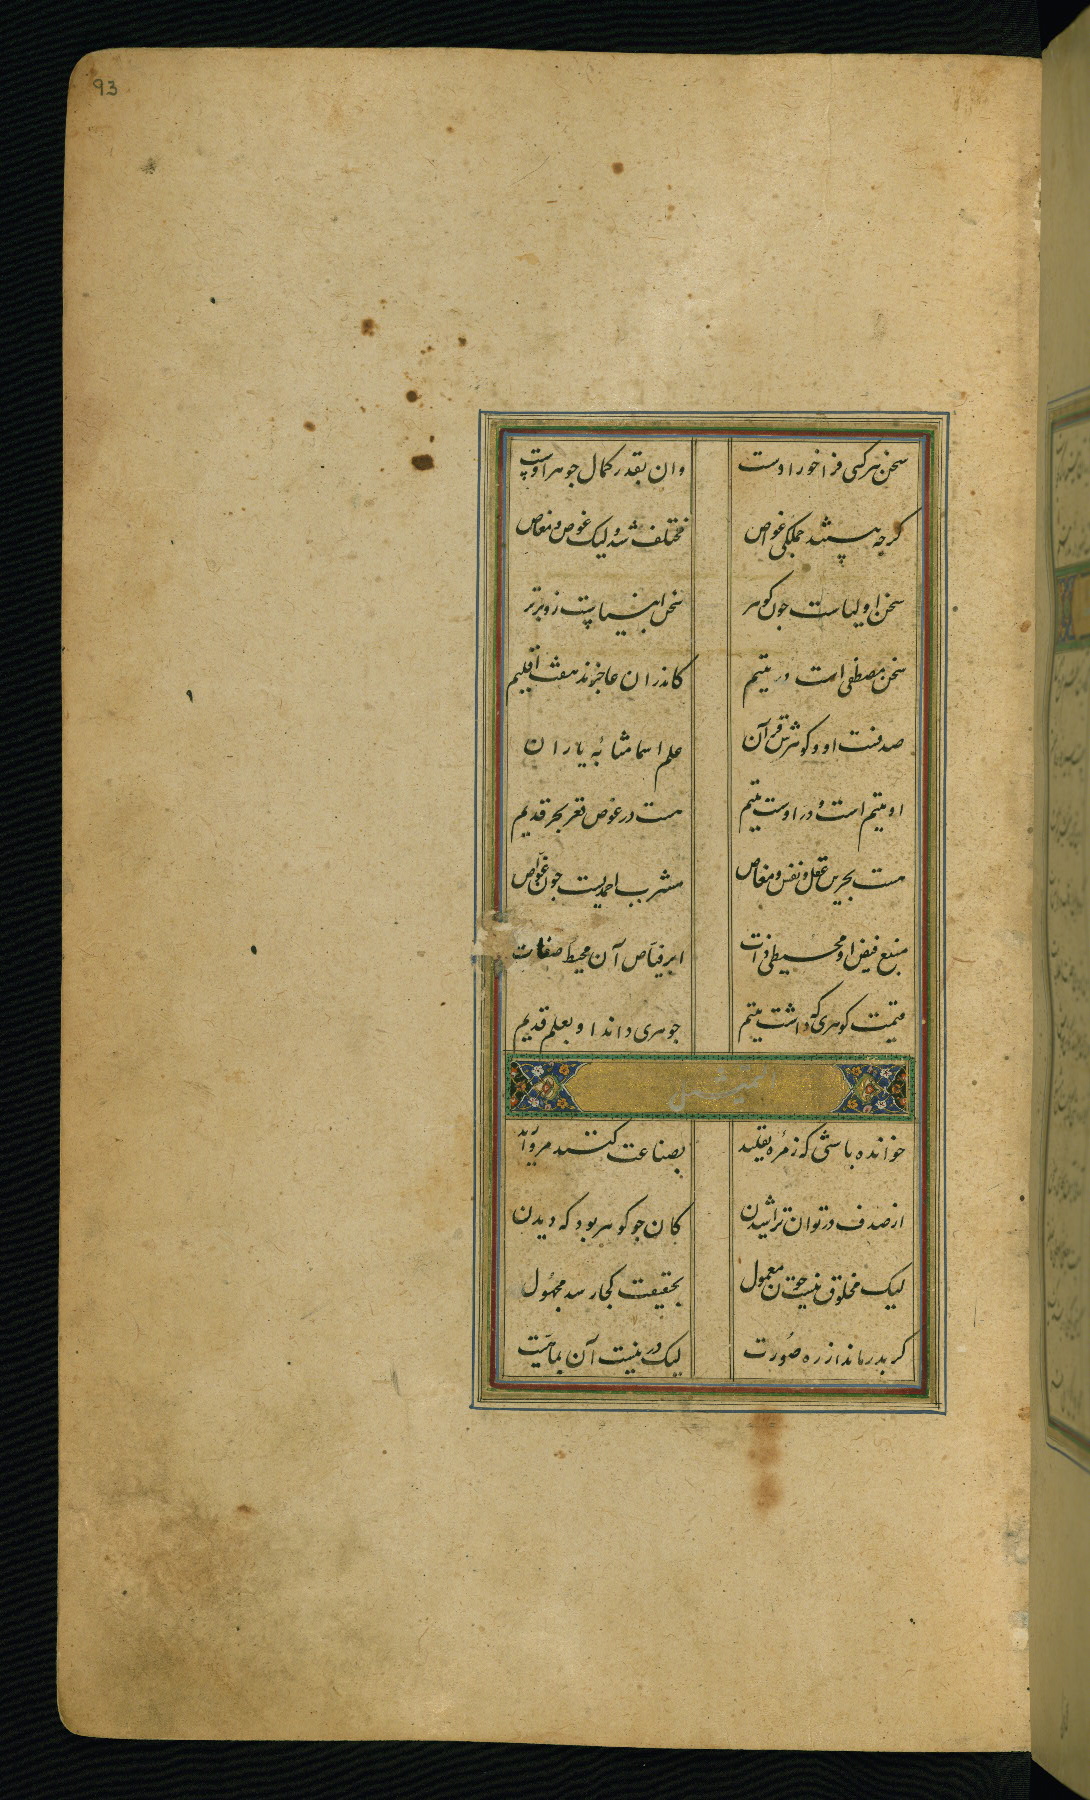 93
سخن هرکسی فراخور اوست وان بقدر کمال جوهر اوست
کرچه هستند جملکی غواص مختلف شد ولیک غوص و مغاص
سخن اولیاست جون کوهر سخن انبیاست زو برتر
سخن مصطفی است در یتیم کاندران عاجزند هفت اقلیم
صدفست او و کوهرش قرآن علم اسما مشابه یاران
او یتیم است و در اوست یتیم هست در غوص قعر بحر قدیم
هست بحرین عقل و نفس و مغاص مشرب احمدیست جون غواص
منبع فیض او محیطی ذات ابر فیاض آن محیط صفات
قیمت کوهری که داشت یتیم جوهری داند او بعلم قدیم
التمثیل
خوانده باشی که زمره تقلید بصناعت کنند مروارید
از صدف در توان تراشیدن کان جو کوهر بود که دیدن
لیک مخلوق نیست جون معمول بحقیقت کجا رسد مجهول
کر بدر ماند از ره صورت لیک در نیست آن بماهیت